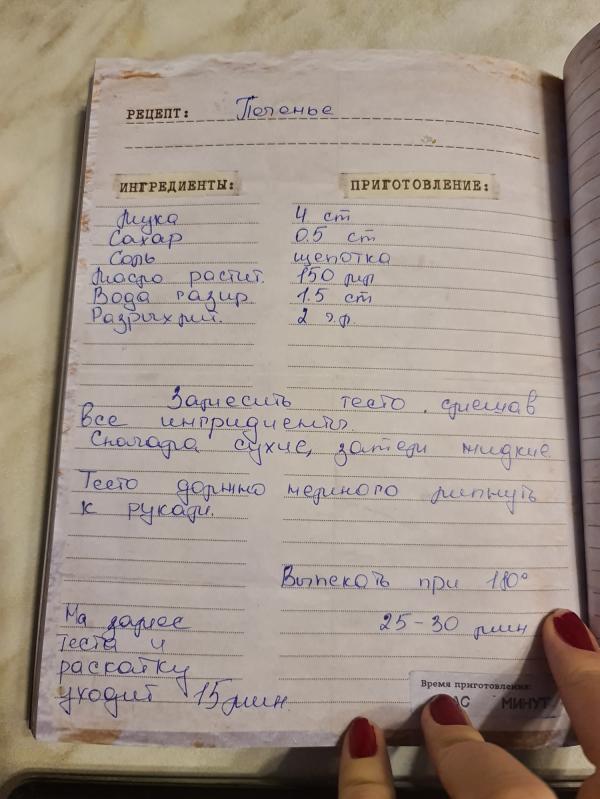 РЕЦЕПТ: Печенье
ИНГРЕДИЕНТЫ: ПРИГОТОВЛЕНИЕ:
Мука 4 ст
Сахар 0.5 ст
Соль щепотка
Масло растит. 150 мл
Вода газир 1.5 ст
Разрыхлит. 2 ч.л.
Замесить тесто, смешав
все ингридиенты.
Сначала сухие, затем жидкие
Тесто должно немного липнуть
к рукам.
Выпекать при 180°
25-30 мин
На замес
теста и
раскатку
уходит 15 мин
Время приготовления:
МИНУТ